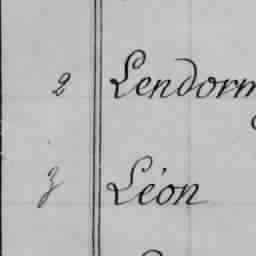 2 Lendorm
3 Léon